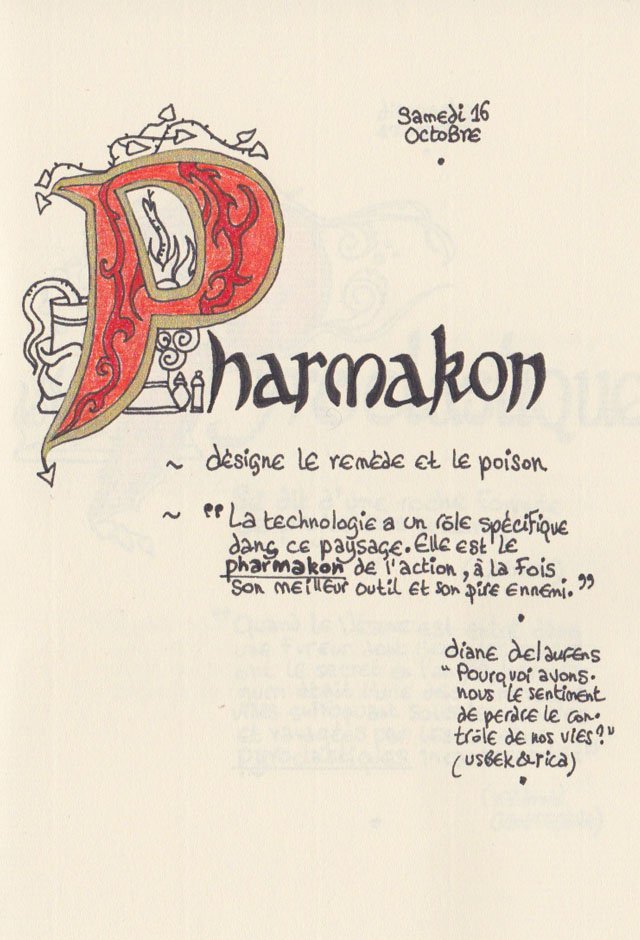 Samedi 16
Octobre
Pharmakon
~ désigne le remède et le poison
~ "La technologie a un rôle spécifique
dans ce paysage. Elle est le
pharmakon de l'action, à la fois
son meilleur outil et son pire ennemi."
diane delaurens
"Pourquoi avons-
nous le sentiment
de perdre le con-
trôle de nos vies?"
(usbek&rica)